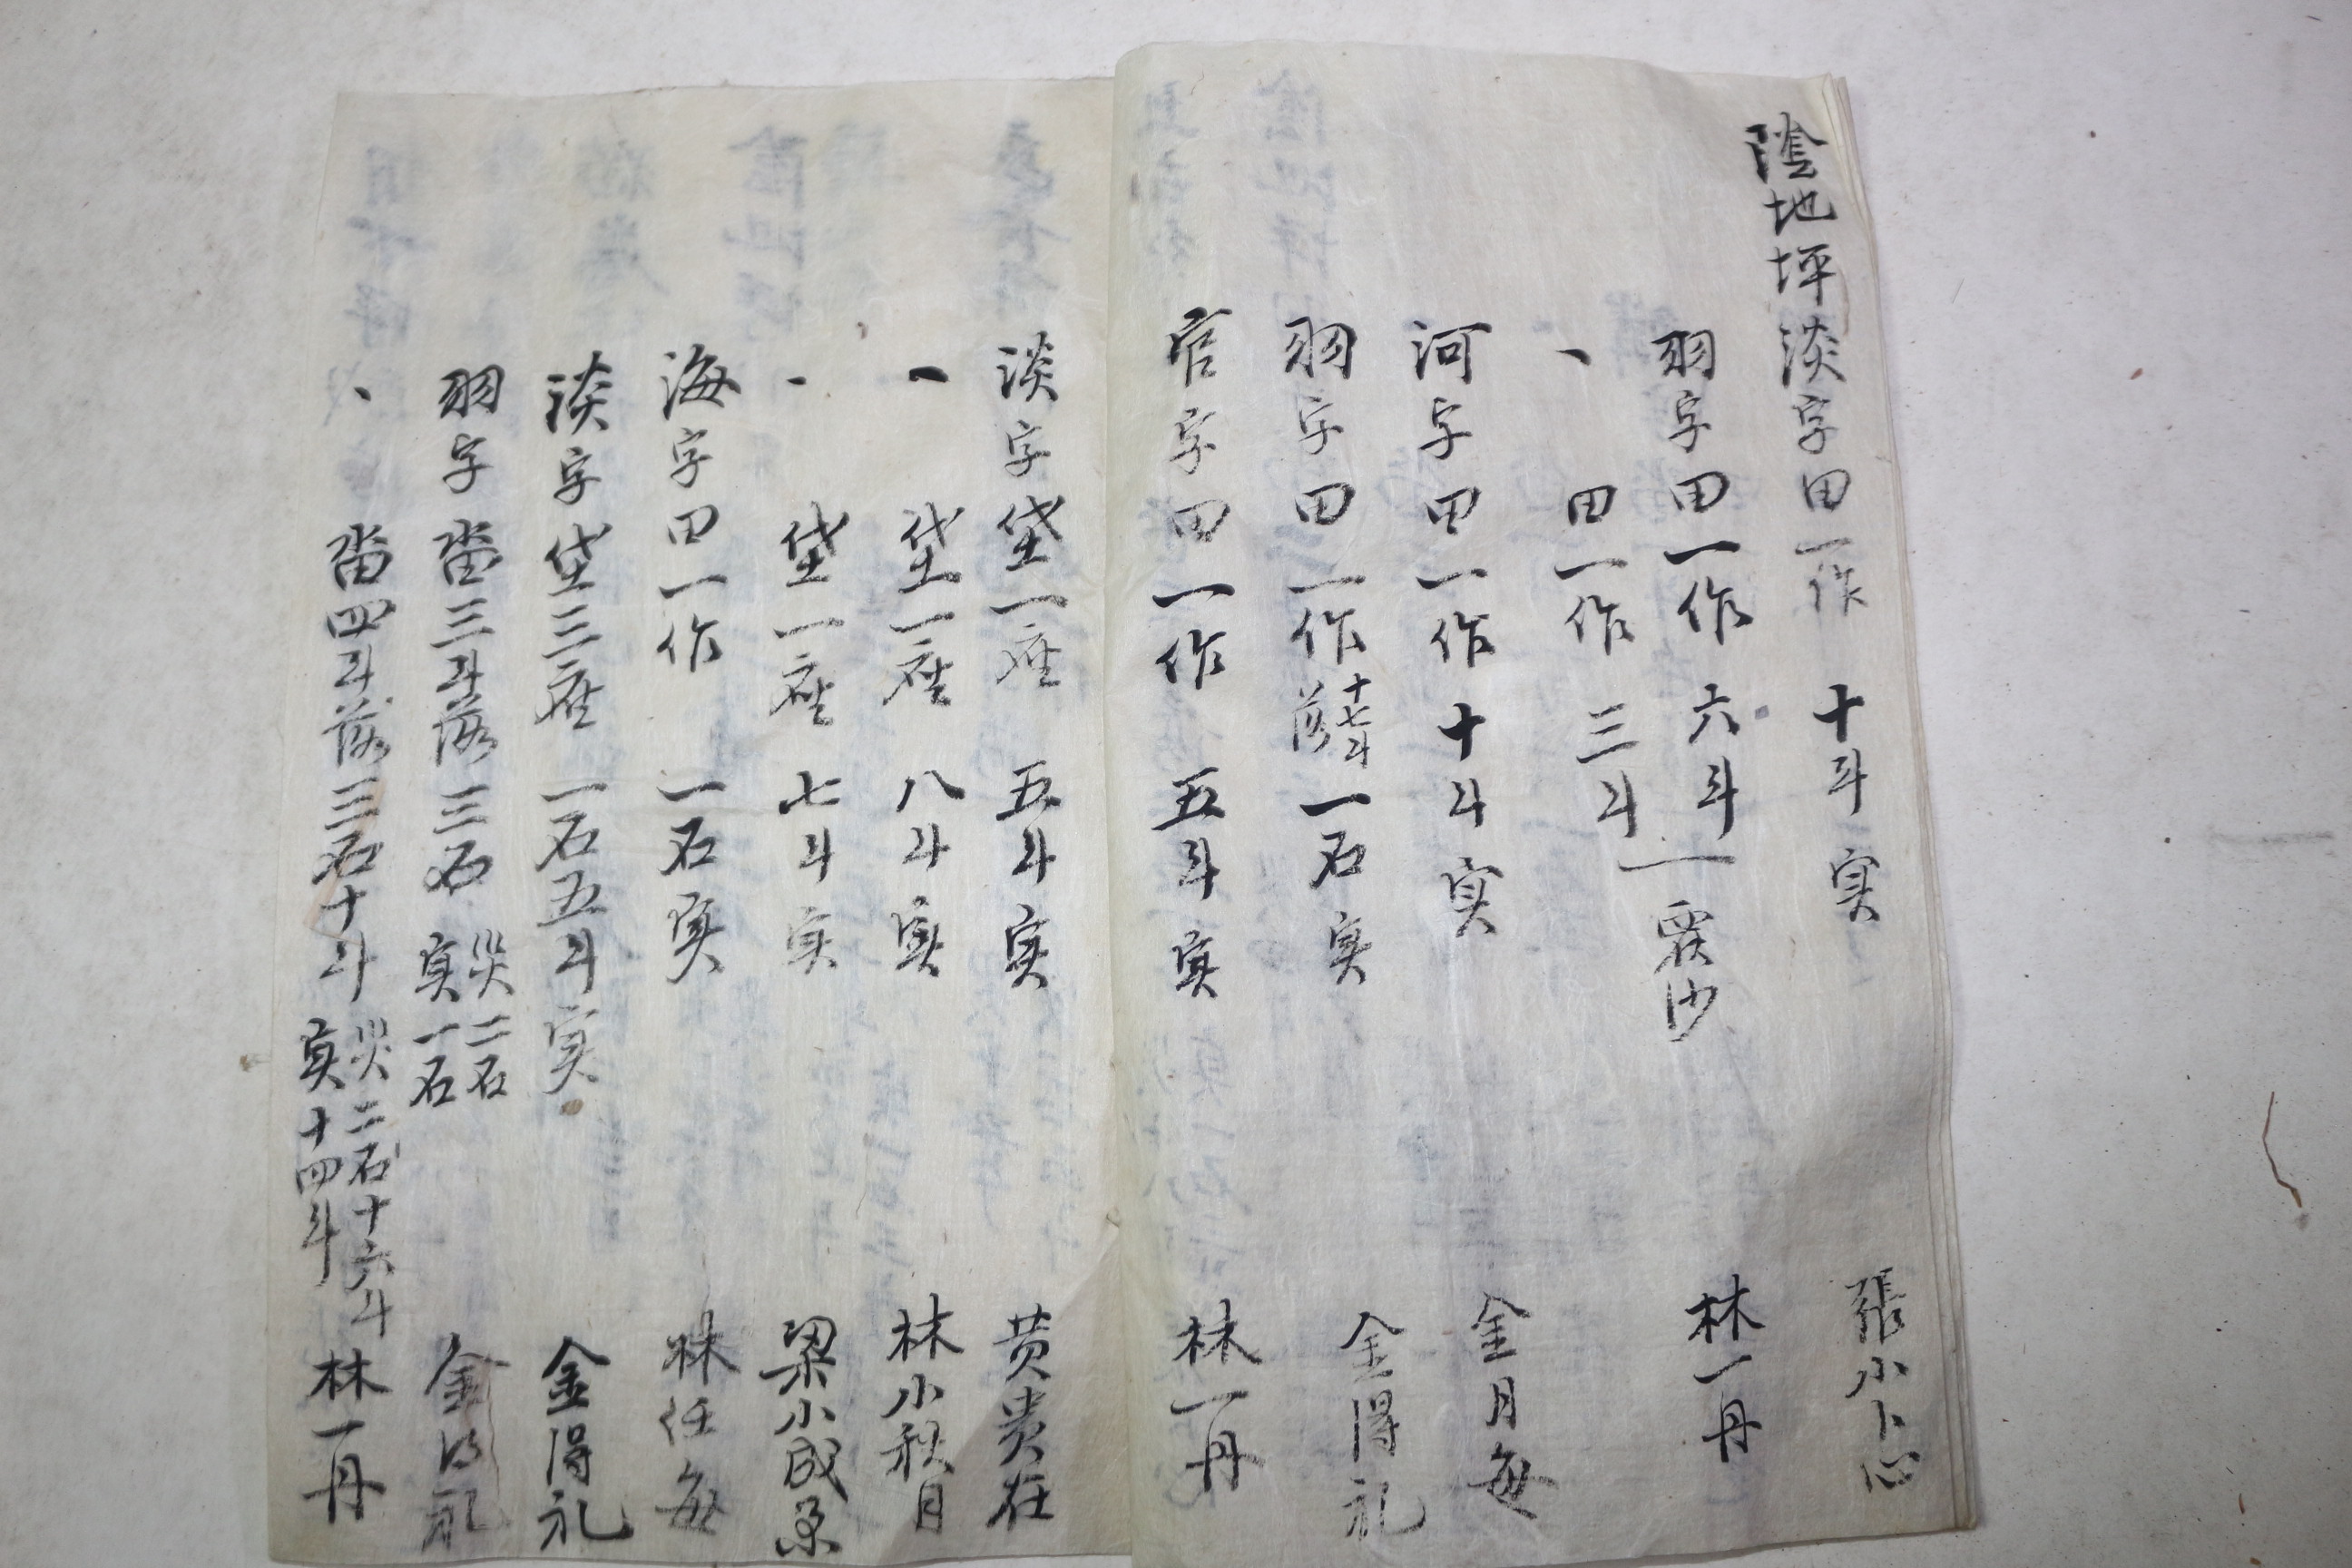 陰地坪淡字田一作 十斗 実 張小卜心
羽字田一作 六斗
丶 田一作 三斗 覆沙 林一丹
河字田一作 十斗 実 金月每
羽字田一作 十七斗落 一石 実 金得礼
官字田一作 五斗 実 林一丹
淡字垈一座 五斗 実 黄贵在
一 垈一座 八斗 実 林小秋月
丶 垈一座 七斗 実 梁小成
海字田一作 一石 実 林任每
淡字垈三座 一石五斗 実 金得礼
羽字畓三斗落 三石 災二石 実一石 金得礼
丶 畓四斗落 三石十斗 災二石十六斗 実十四斗 林一丹